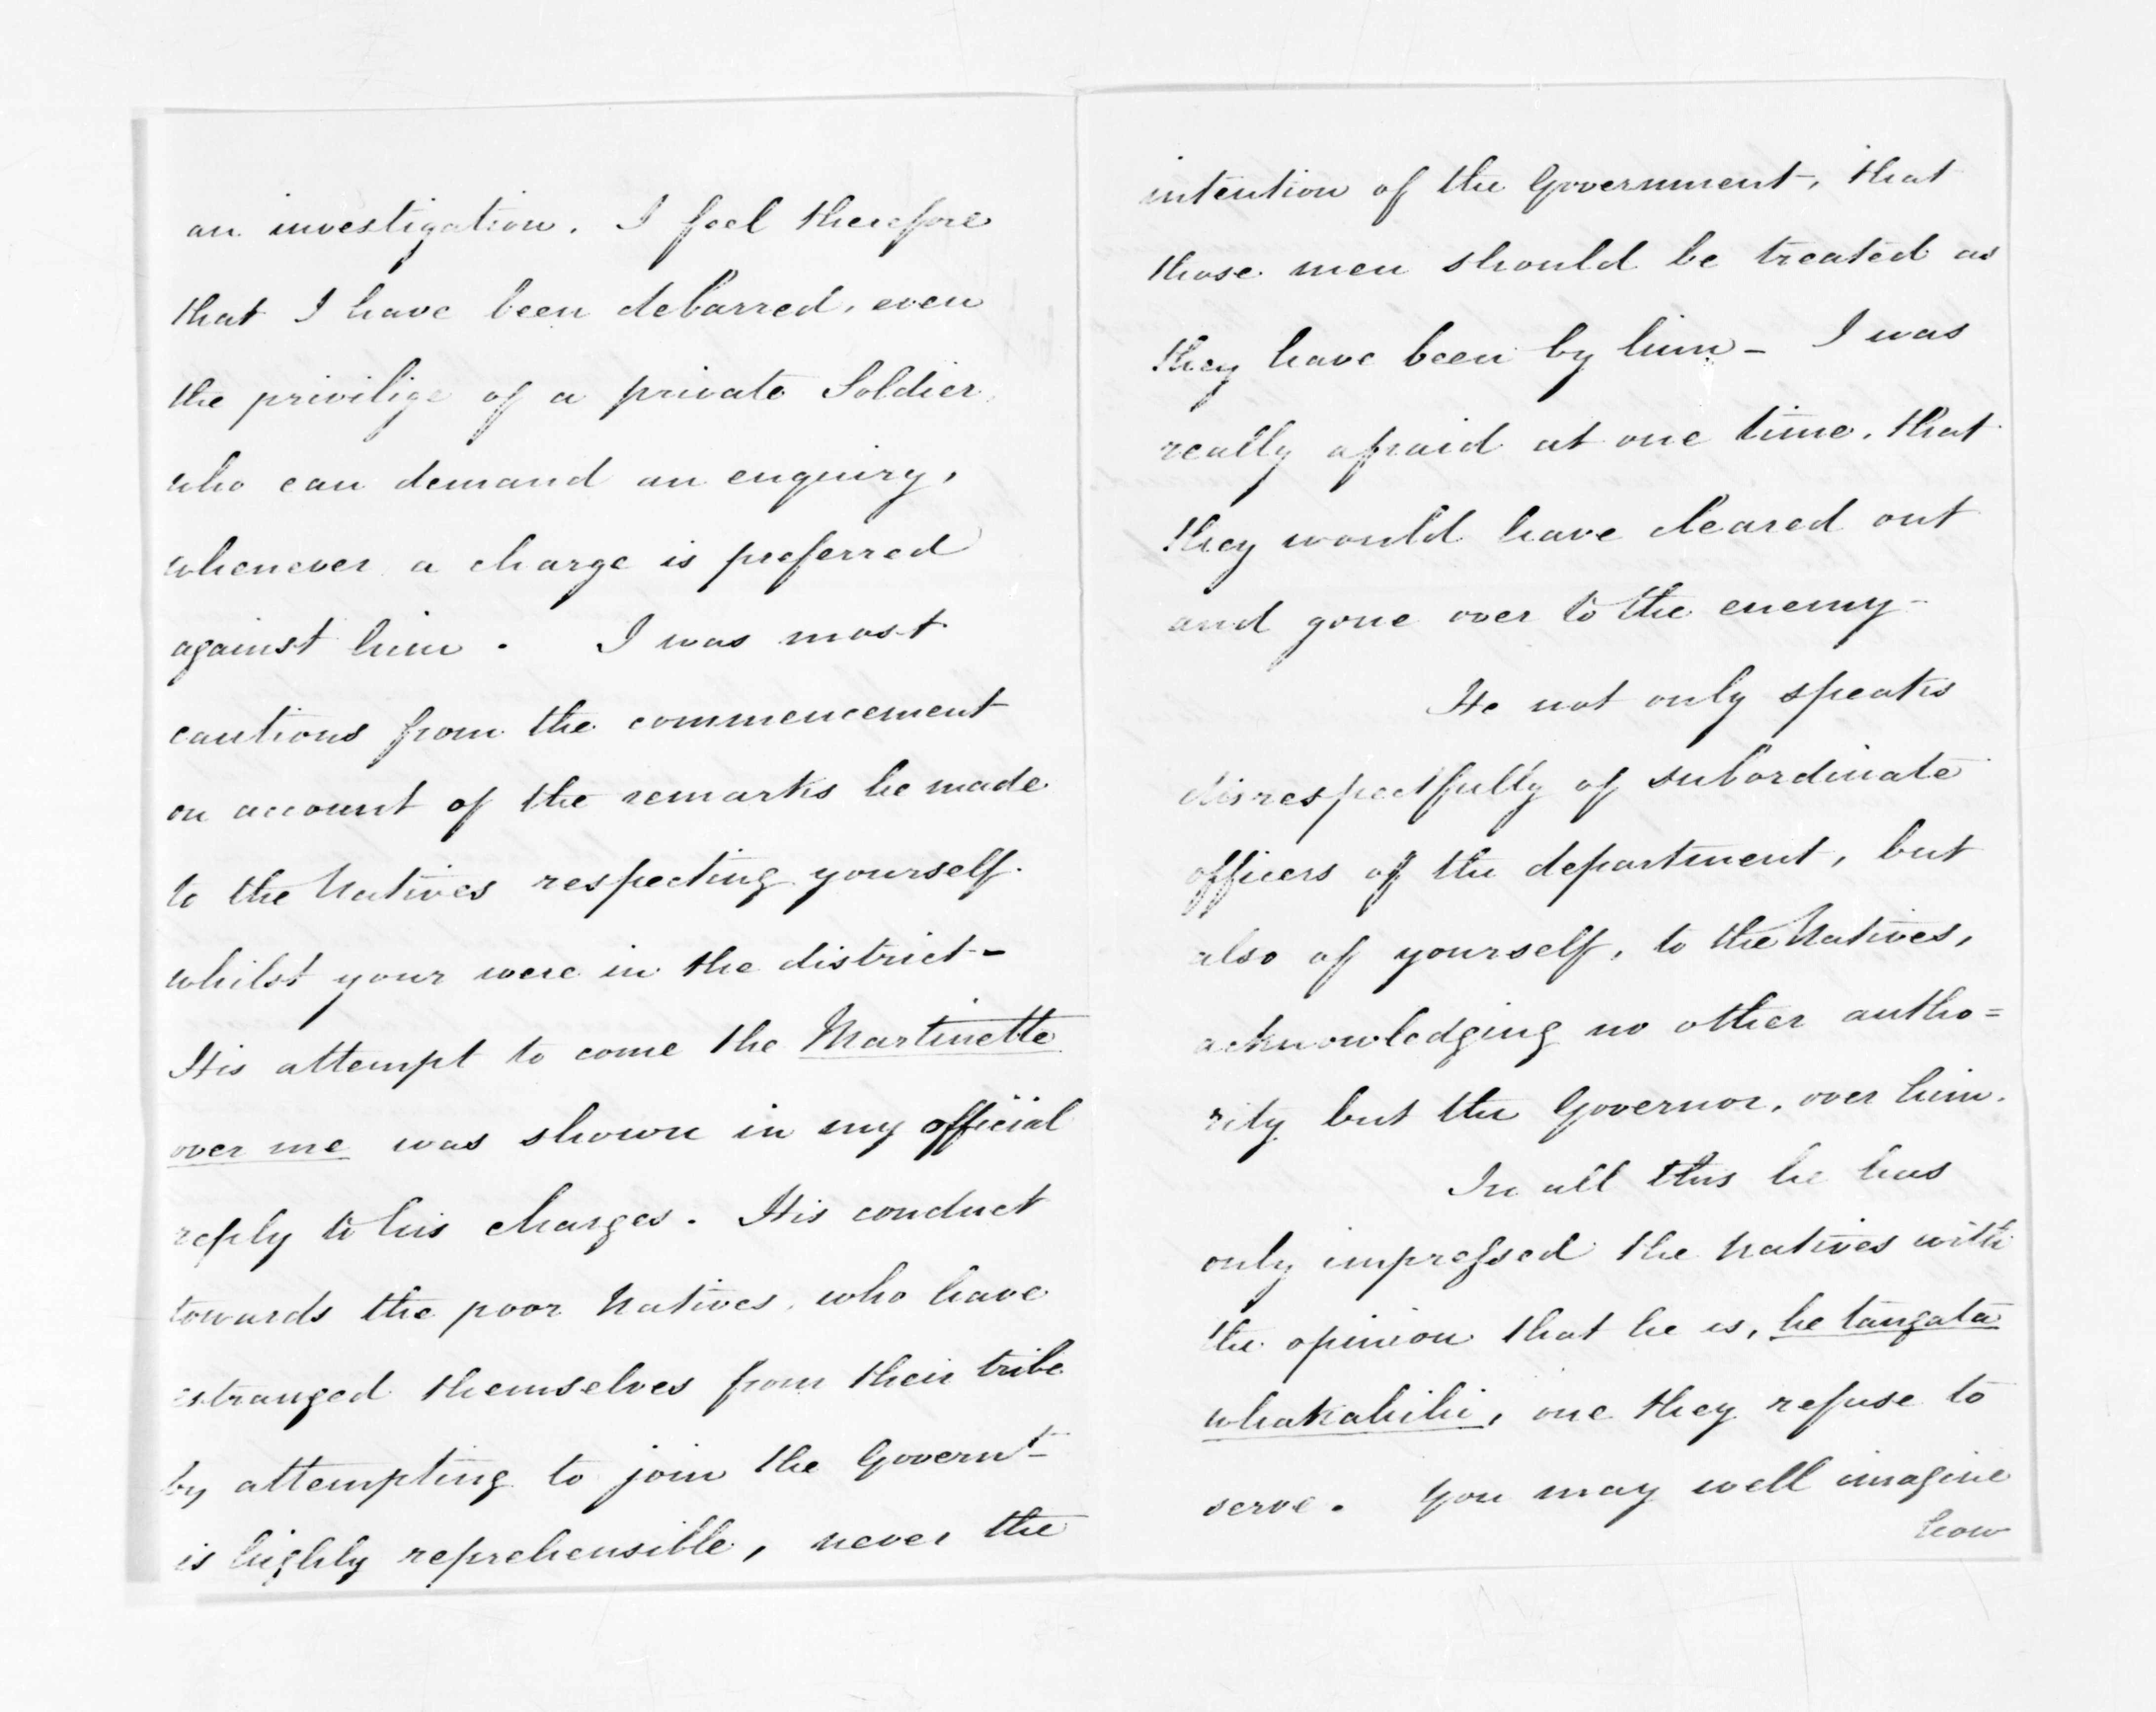 an investigation. I feel therefore
that I have been debarred, even
the privilige of a private Soldier,
who can demand an enquiry,
whenever a charge is preferred
against him. I was most
cautious from the commencement
on account of the remarks he made
to the Natives respecting yourself.
whilst your were in the district-
His attempt to come the Martinette
over me was shown in my official
reply to his charges. His conduct
towards the poor Natives, who have
estranged themselves from their tribe
by attempting to join the Governt
is highly reprehensible, never the
intention of the Government, that
those men should be treated as
they have been by him - I was
really afraid at one time, that
they would have cleared out
and gone over to the enemy-
He not only speaks
disrespectfully of subordinate
officers of the department, but
also of yourself, to the Natives,
acknowledging no other autho=
rity but the Governor, over him.
In all this he has
only impressed the Natives with
the opinion that he is, he tangata
whakahihi, one they refuse to
serve. You may well imagine
how